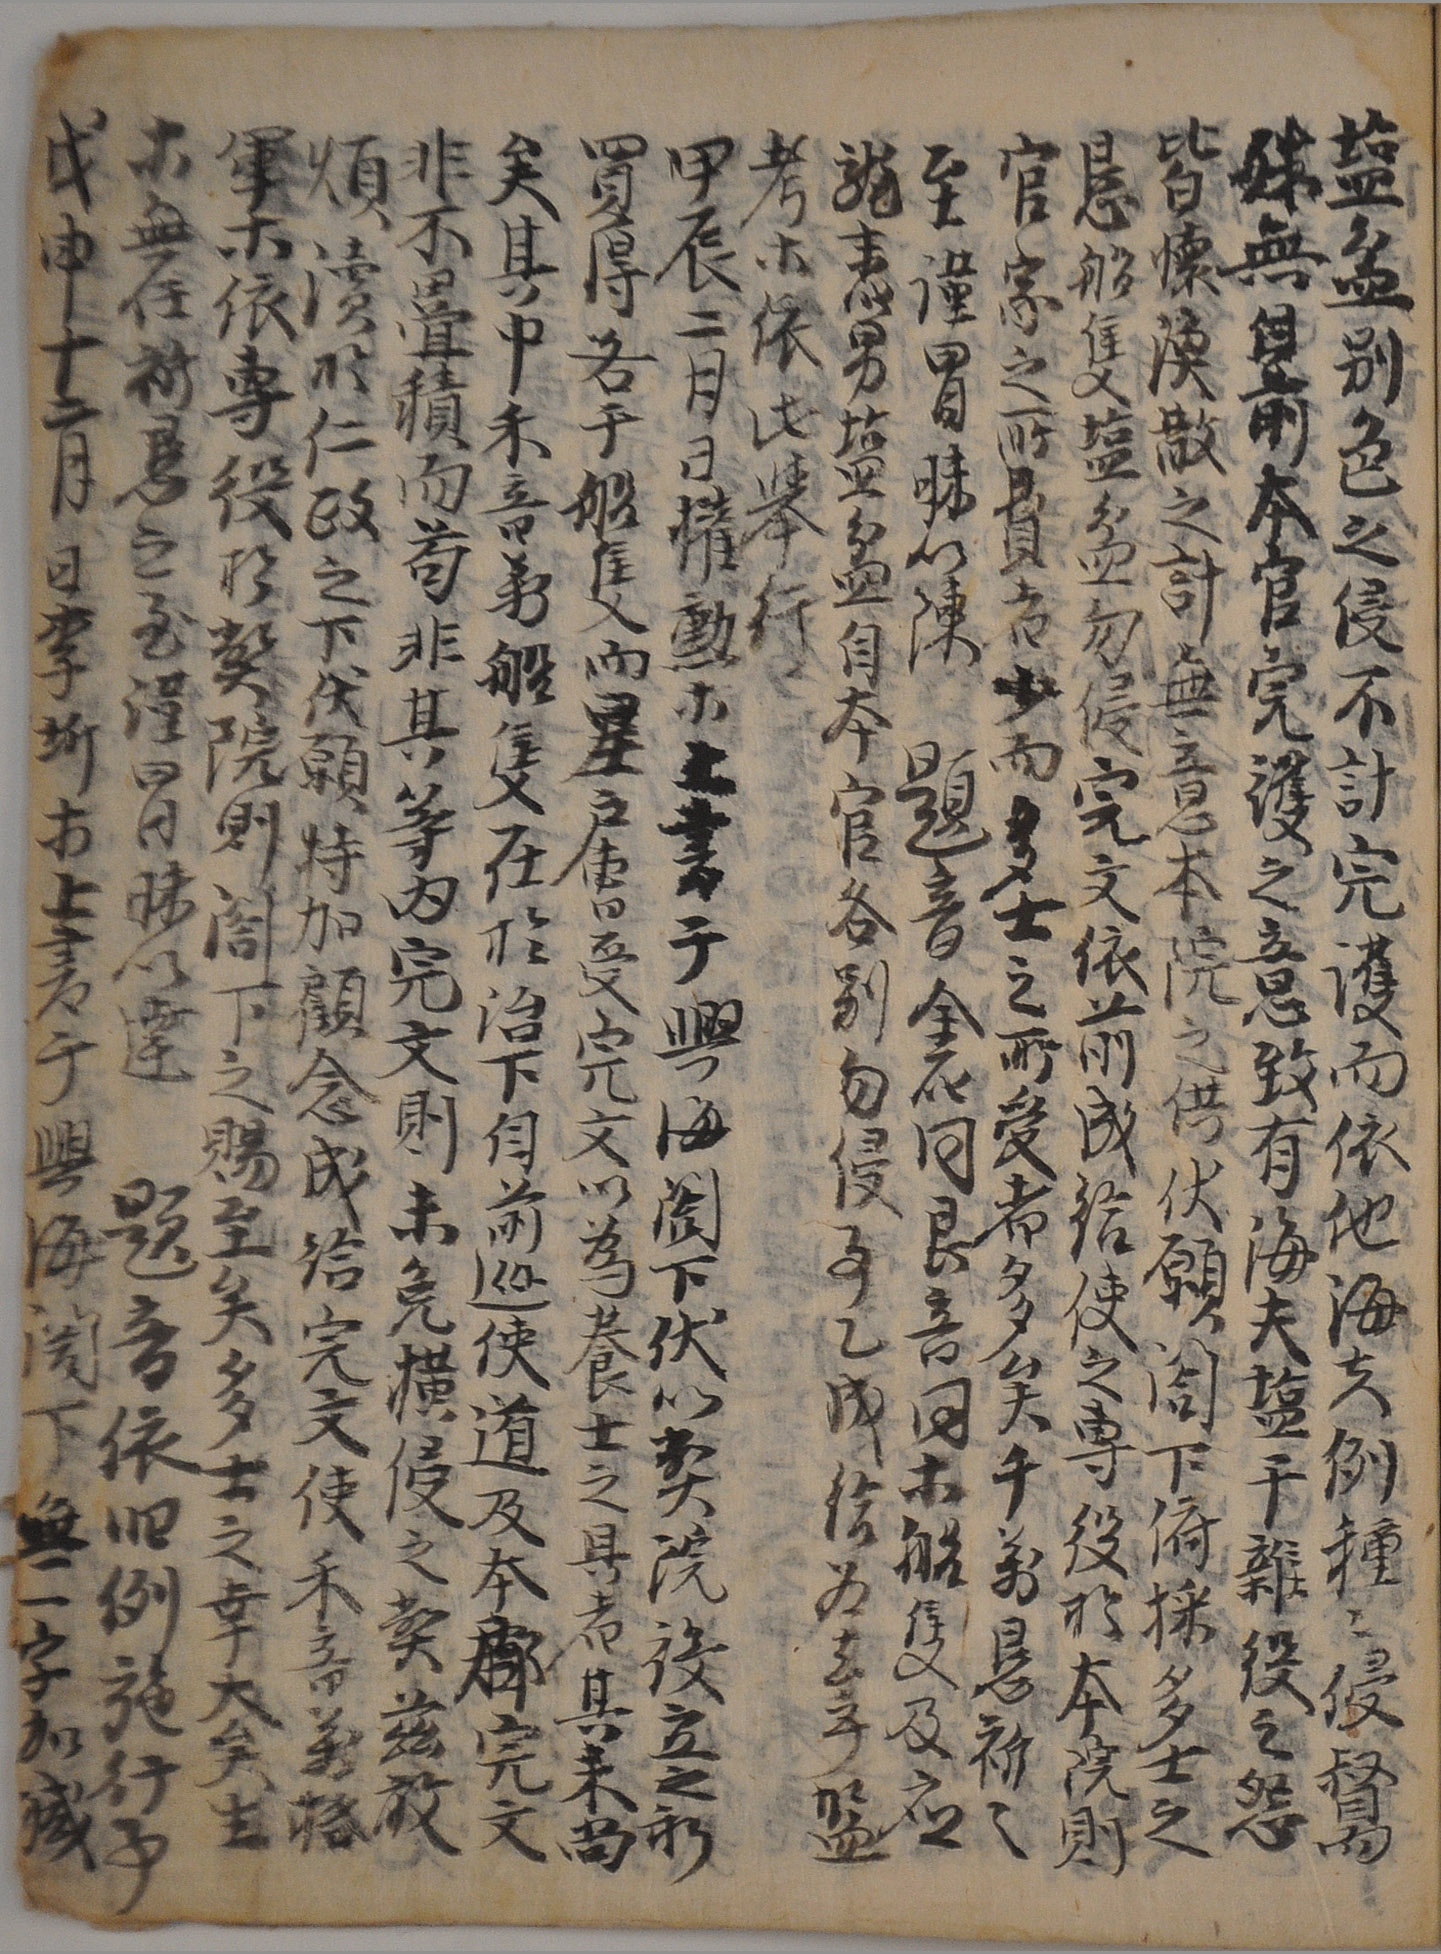 塩盆別色之侵不計完護而依他海夫例種〻侵督而
殊無見前本官完護之意致有海夫塩干雜役之怨
皆懷渙散之計無意本院之供伏願閤下俯採多士之
恳船隻塩盆勿侵完文依前成給使之專役於本院則
官家之所費者少而多士之所受者多多矣千万恳祈〻
至謹冒昧以陳 題音全石同良音同木船隻及應
龍表男塩盆自本官各別勿侵事乙成給為去乎塩
考木依此舉行
甲辰二月日權勳木上書于興海閤下伏以契院設立之初
買得若干船隻而畢户曾受完文以為養士之具者其來尚
矣其中禾音万船隻在於治下自前巡使道及本府完文
非不疊積而苟非其等內完文則未免橫侵之契茲敢
煩瀆於仁政之下伏願特加顧念成給完文使禾音万格
軍木依專役於契院則閤下之賜至矣多士之幸大矣生
木無任祈恳之至謹冒昧以達 題音依旧例施行事
戊申十二月日李圻木上書于興海閤下無一字加減